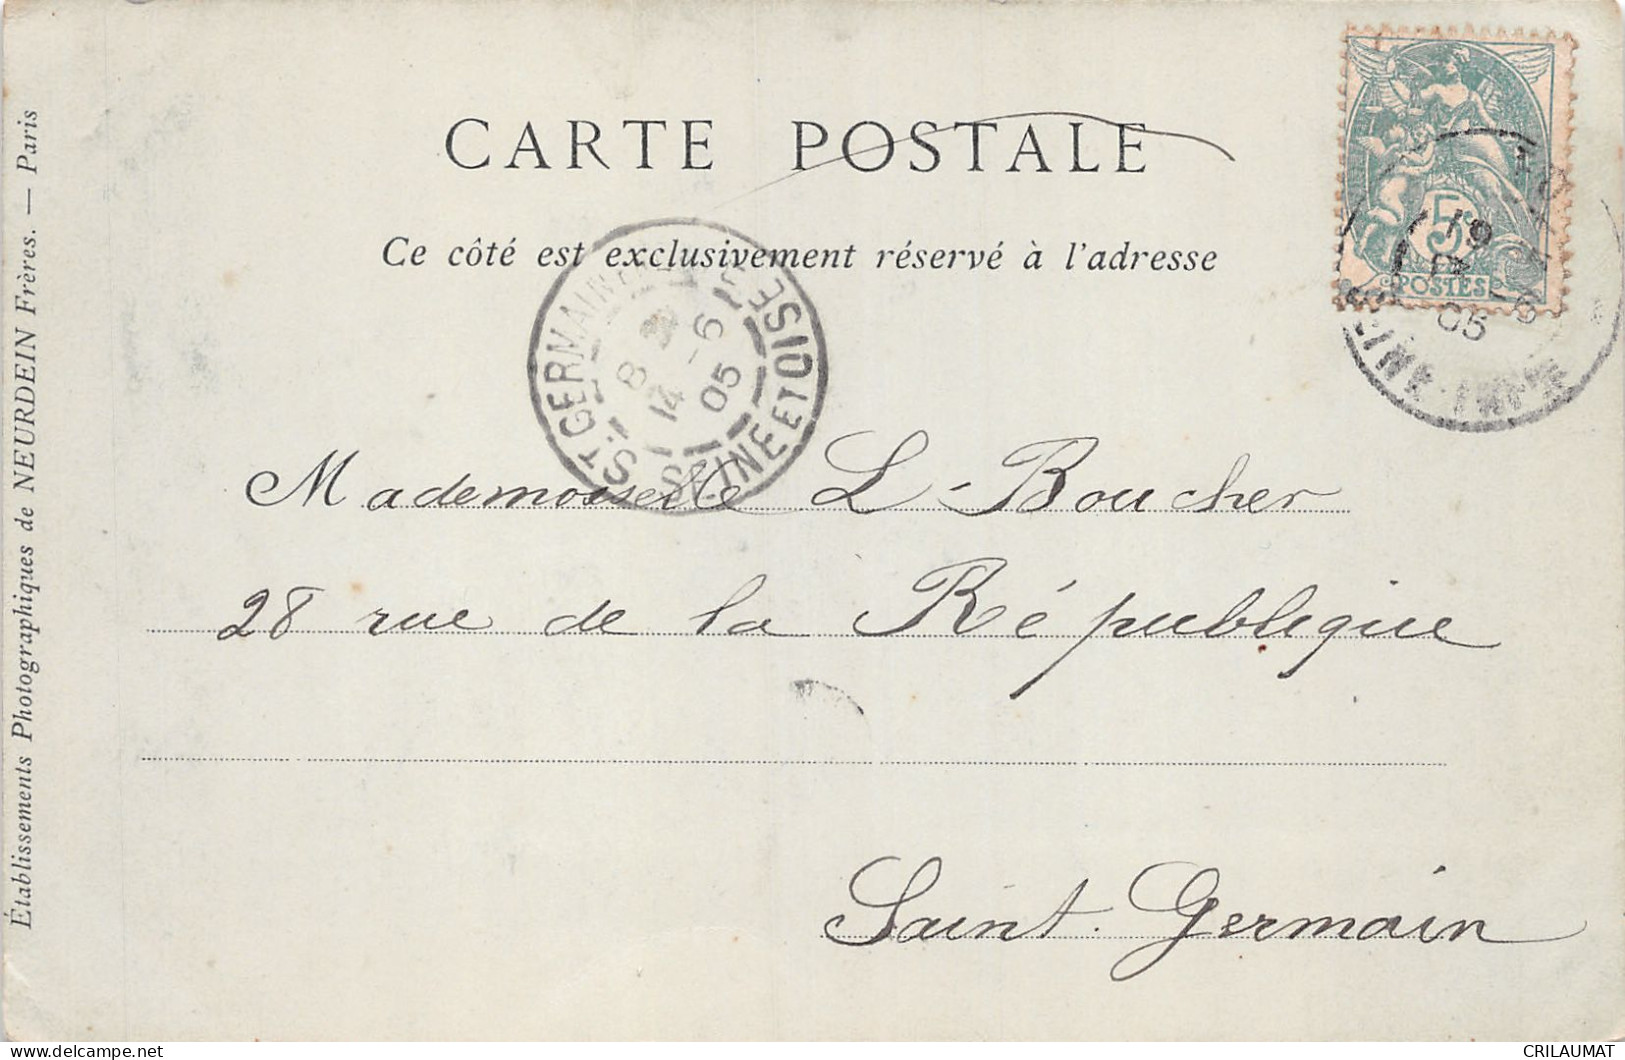 CARTE POSTALE
Ce côté est exclusivement réservé à l'adresse
5c
POSTES
19
6
05
ST GERMAIN
SEINE ET OISE
8
14 - 6
05
Mademoiselle L. Boucher
28 rue de la République
Saint. Germain
Établissements Photographiques de NEURDEIN Frères. — Paris
delcampe.net
CRILAUMAT